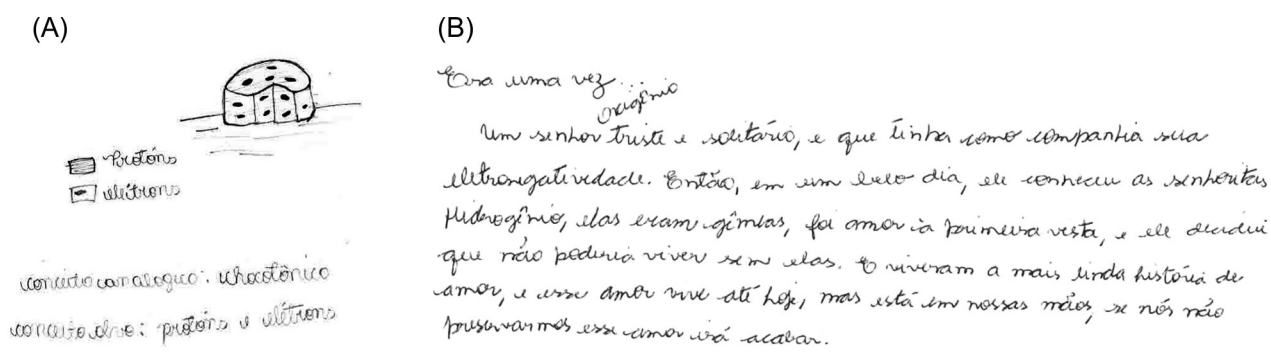 (A)
(B)
Protóns
elétrons
conceito analogico: chocotônico
conceito alvo: protóns e elétrons
Era uma vez...
oxigênio
Um senhor triste e solitário, e que tinha como companhia sua
eletronegatividade. Então, em um belo dia, ele conheceu as senhoritas
Hidrogênio, elas eram gêmeas, foi amor à primeira vista, e ele decidiu
que não poderia viver sem elas. E viveram a mais linda história de
amor, e esse amor vive até hoje, mas está em nossas mãos, se nós não
preservarmos esse amor irá acabar.